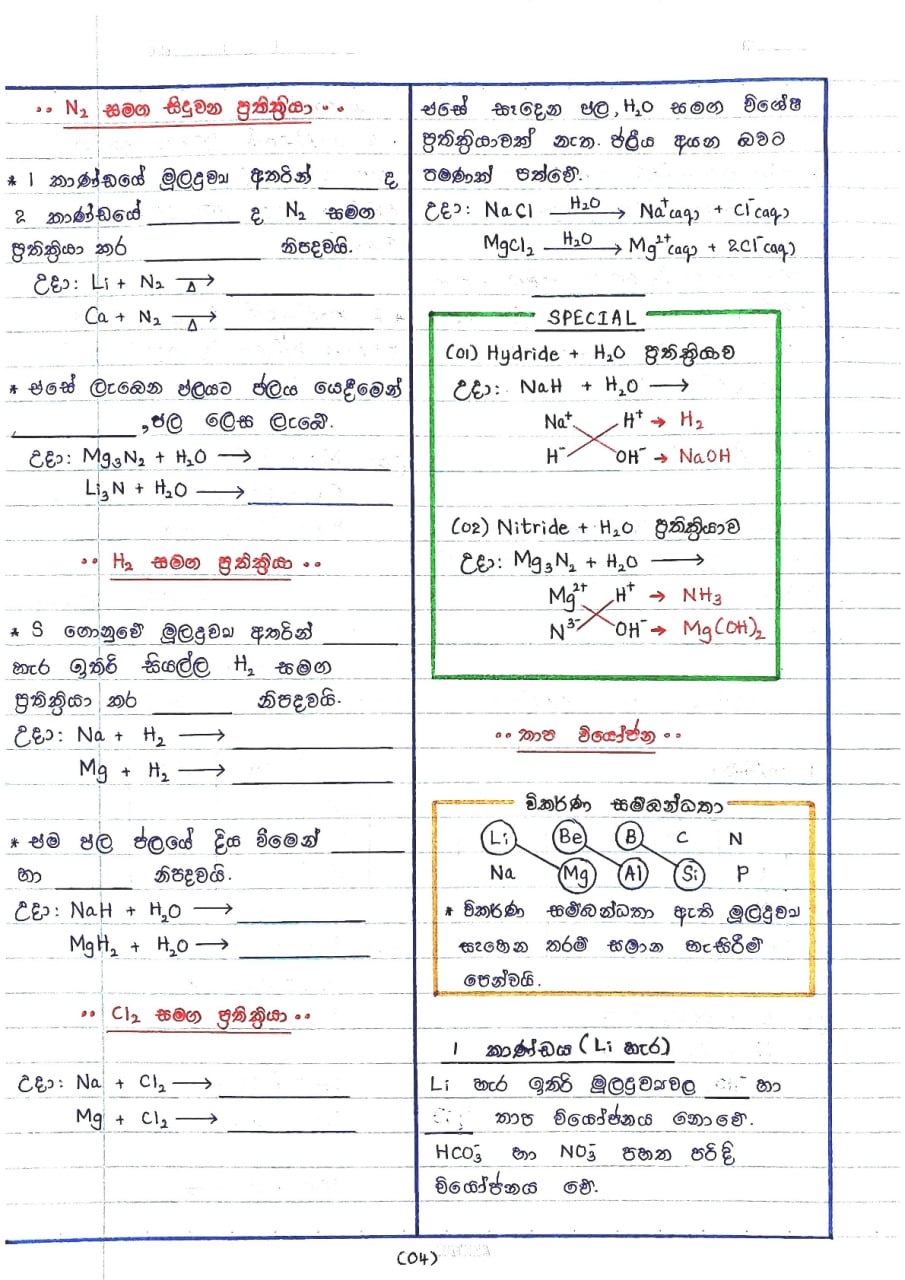 ·· N₂ සමග සිදුවන ප්‍රතික්‍රියා ··
* 1 කාණ්ඩයේ මූලද්‍රව්‍ය අතරින් ______ ද
2 කාණ්ඩයේ ________ ද N₂ සමග
ප්‍රතික්‍රියා කර ____________ නිපදවයි.
උදා: Li + N₂ —Δ→ ____________
Ca + N₂ —Δ→ ____________
* එසේ ලැබෙන ඵලයට ජලය යෙදීමෙන්
____________ ,ඵල ලෙස ලැබේ.
උදා: Mg₃N₂ + H₂O ⟶ ____________
Li₃N + H₂O ⟶ ____________
·· H₂ සමග ප්‍රතික්‍රියා ··
* S ගොනුවේ මූලද්‍රව්‍ය අතරින් ________
හැර ඉතිරි සියල්ල H₂ සමග
ප්‍රතික්‍රියා කර ________ නිපදවයි.
උදා: Na + H₂ ⟶ ____________
Mg + H₂ ⟶ ____________
* එම ඵල ජලයේ දිය වීමෙන් ________
හා ________ නිපදවයි.
උදා: NaH + H₂O ⟶ ____________
MgH₂ + H₂O ⟶ ____________
·· Cl₂ සමග ප්‍රතික්‍රියා ··
උදා: Na + Cl₂ ⟶ ____________
Mg + Cl₂ ⟶ ____________
එසේ සෑදෙන ඵල, H₂O සමග විශේෂ
ප්‍රතික්‍රියාවක් නැත. ජලීය අයන බවට
පමණක් පත්වේ.
උදා: NaCl —H₂O→ Na⁺(aq) + Cl⁻(aq)
MgCl₂ —H₂O→ Mg²⁺(aq) + 2Cl⁻(aq)
SPECIAL
(01) Hydride + H₂O ප්‍රතික්‍රියාව
උදා: NaH + H₂O ⟶
Na⁺ H⁺ → H₂
H⁻ OH⁻ → NaOH
(02) Nitride + H₂O ප්‍රතික්‍රියාව
උදා: Mg₃N₂ + H₂O ⟶
Mg²⁺ H⁺ → NH₃
N³⁻ OH⁻ → Mg(OH)₂
·· තාප වියෝජන ··
විකර්ණ සම්බන්ධතා
Li Be B C N
Na Mg Al Si P
* විකර්ණ සම්බන්ධතා ඇති මූලද්‍රව්‍ය
සෑහෙන තරම් සමාන හැසිරීම්
පෙන්වයි.
1 කාණ්ඩය (Li හැර)
Li හැර ඉතිරි මූලද්‍රව්‍යවල ____ හා
____ තාප වියෝජනය නොවේ.
HCO₃⁻ හා NO₃⁻ පහත පරිදි
වියෝජනය වේ.
(04)